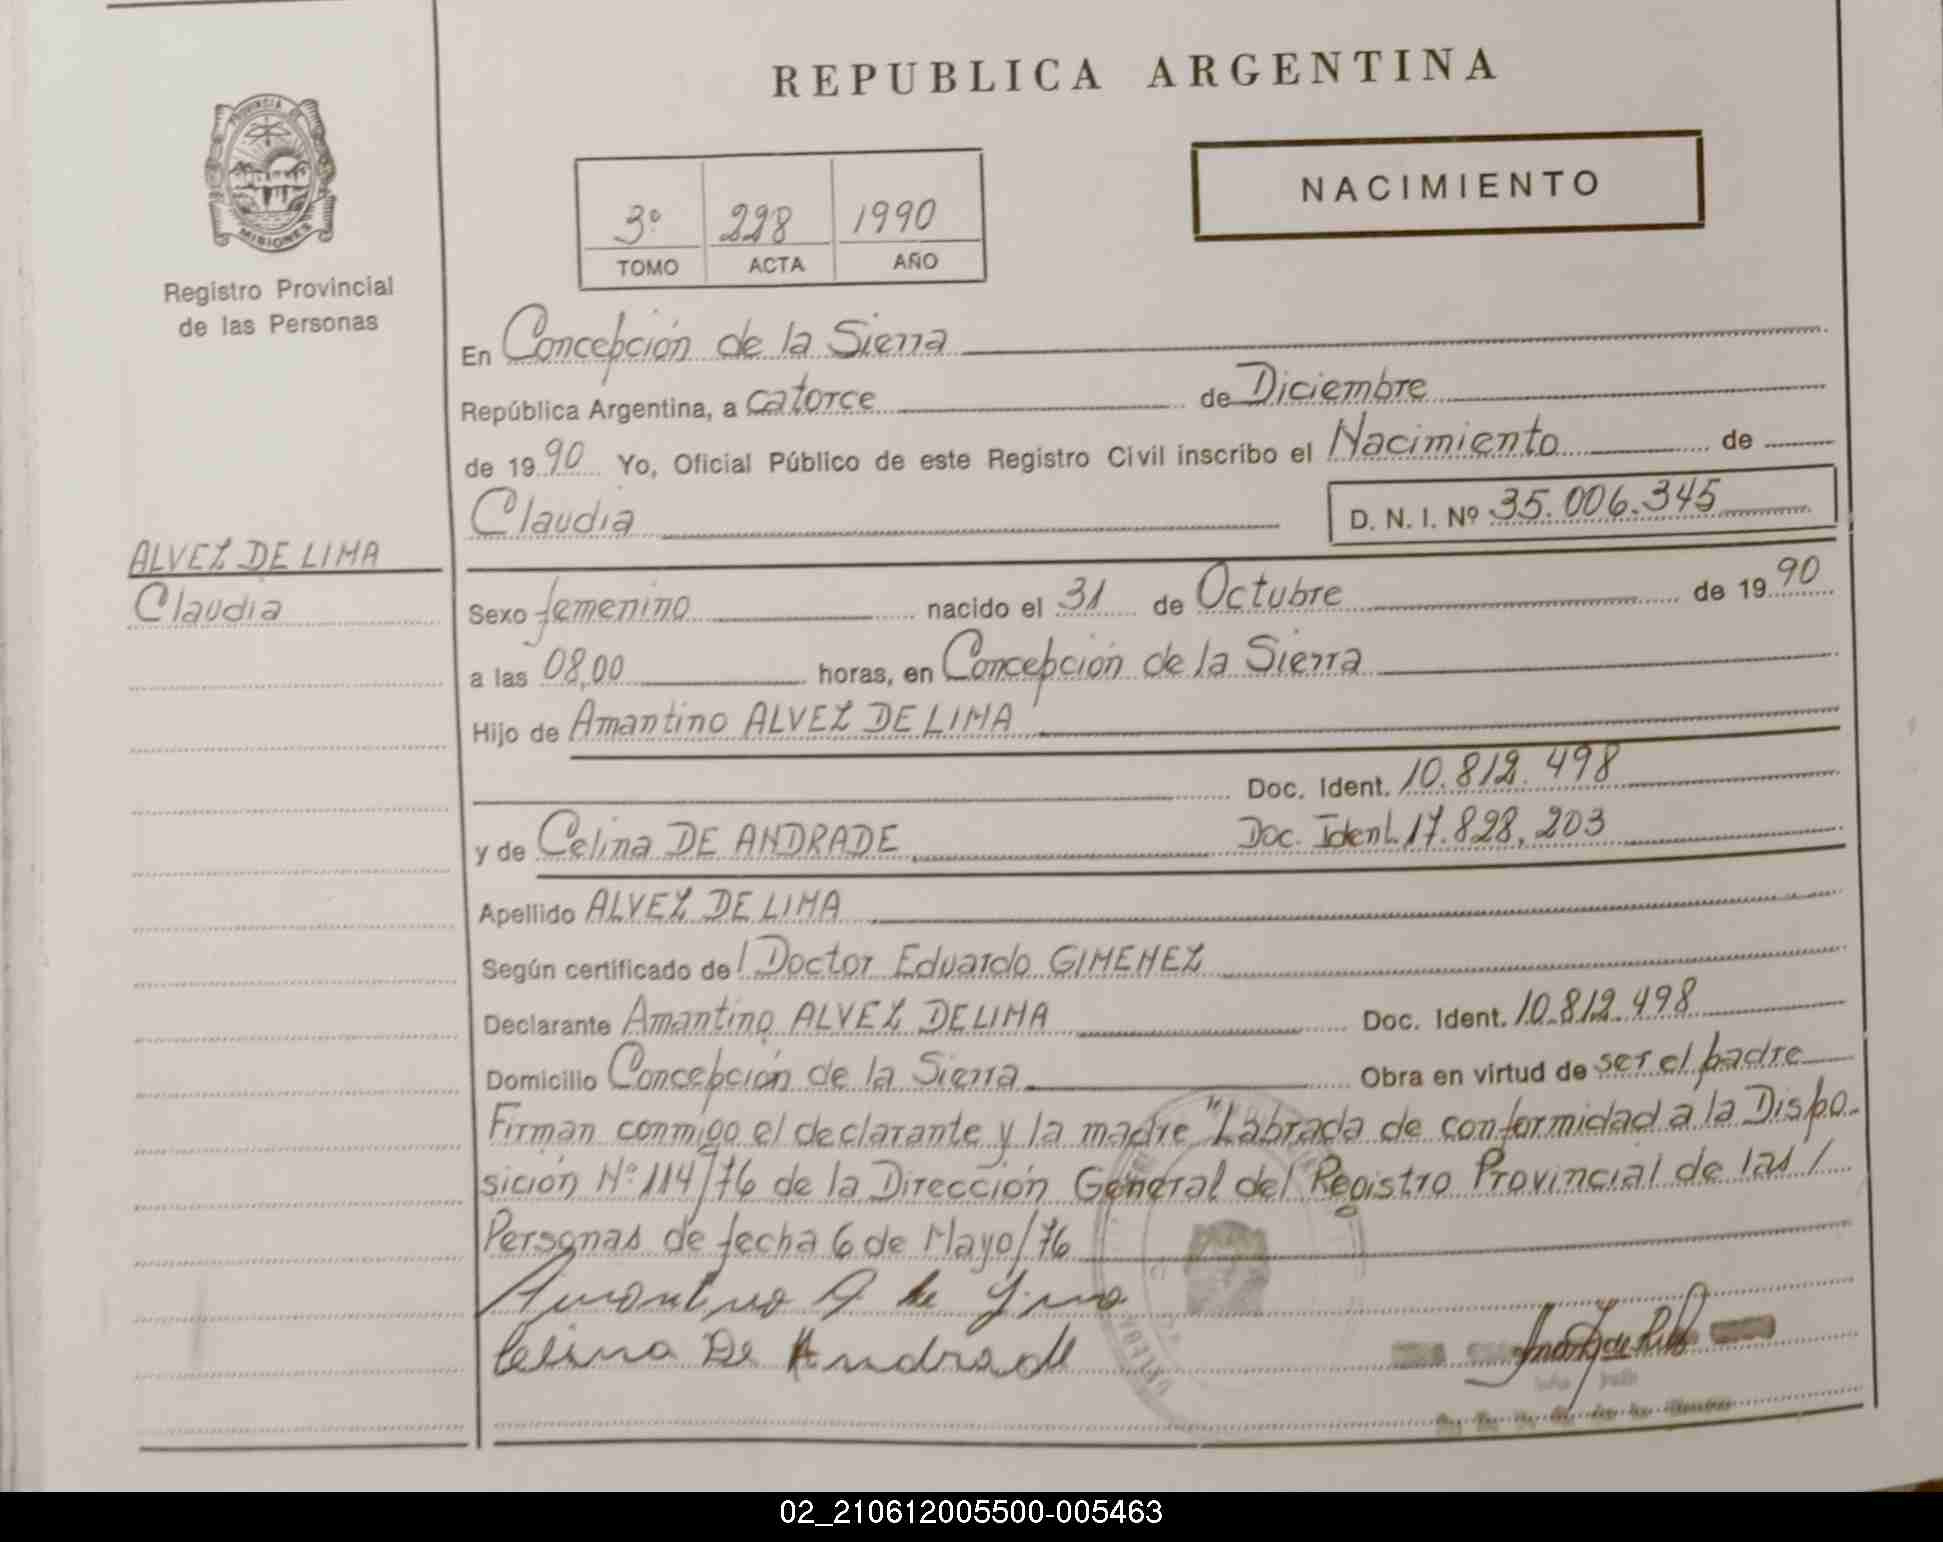 REPUBLICA ARGENTINA
PROVINCIA DE
MISIONES
Registro Provincial
de las Personas
NACIMIENTO
3º 228 1990
TOMO ACTA AÑO
En Concepción de la Sierra
República Argentina, a catorce de Diciembre
de 1990 Yo, Oficial Público de este Registro Civil inscribo el Nacimiento de
Claudia D. N. I. Nº 35.006.345
ALVEZ DE LIMA
Claudia
Sexo femenino nacido el 31 de Octubre de 1990
a las 08,00 horas, en Concepción de la Sierra
Hijo de Amantino ALVEZ DE LIMA
Doc. Ident. 10.812.498
y de Celina DE ANDRADE Doc. Ident. 17.828.203
Apellido ALVEZ DE LIMA
Según certificado del Doctor Eduardo GIMENEZ
Declarante Amantino ALVEZ DE LIMA Doc. Ident. 10.812.498
Domicilio Concepción de la Sierra Obra en virtud de ser el padre
Firman conmigo el declarante y la madre "Labrada de conformidad a la Dispo-
sición Nº 114/76 de la Dirección General del Registro Provincial de las /
Personas de fecha 6 de Mayo/76
Amantino A de Lima
Celina De Andrade
02_210612005500-005463